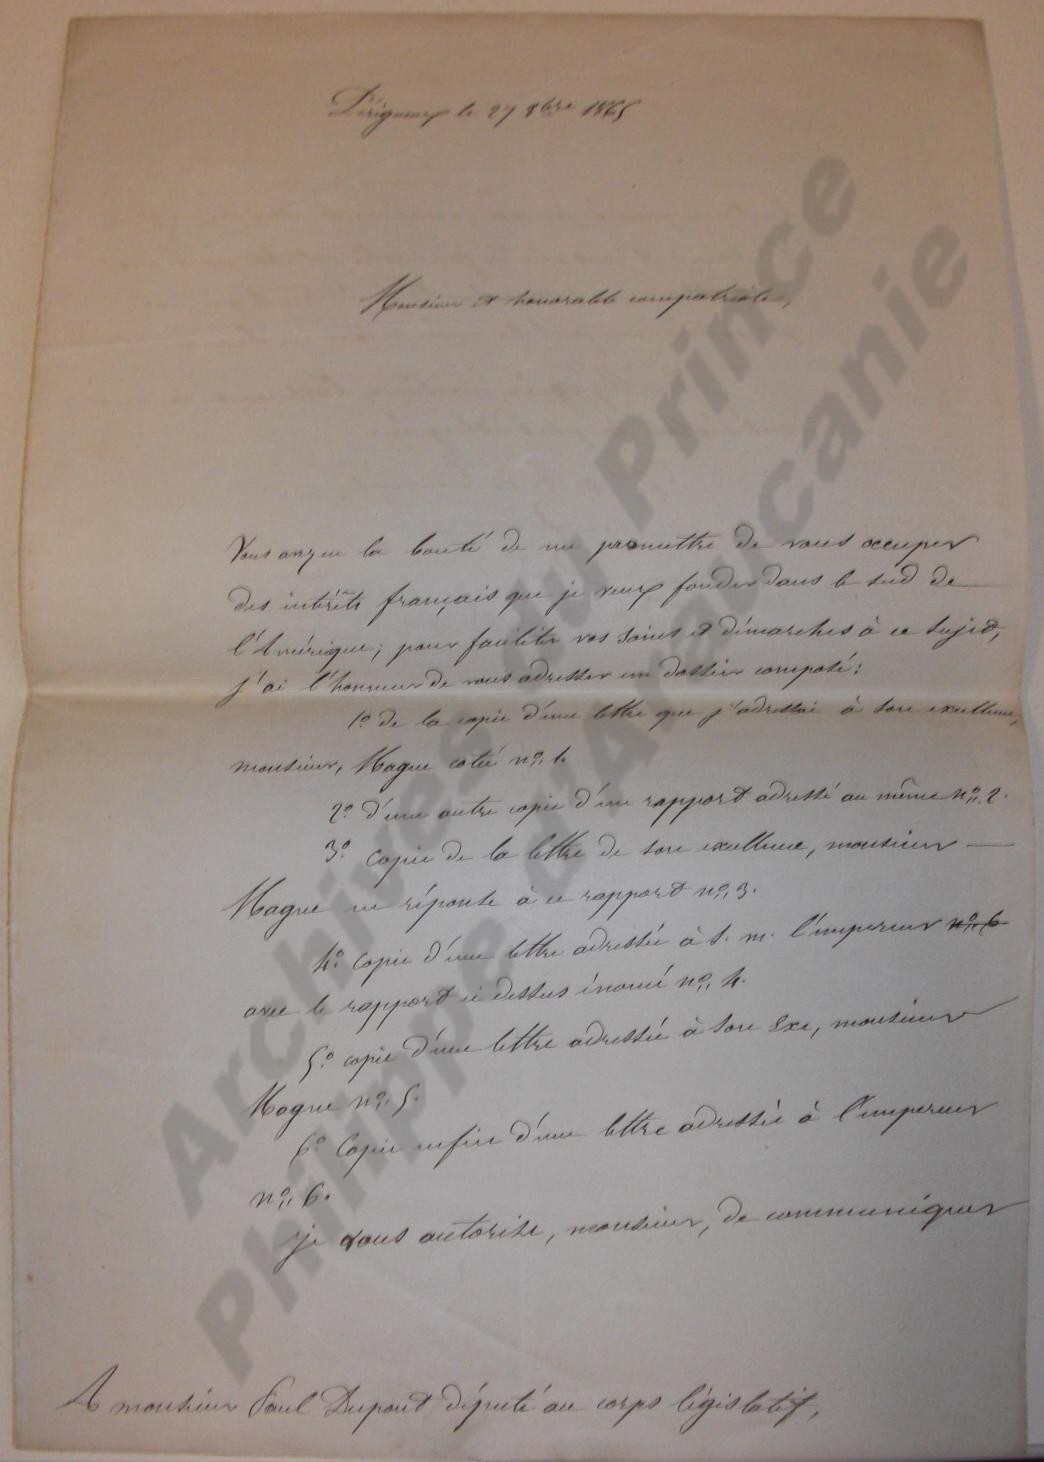 Périgueux le 27 8bre 1865
Monsieur et honorable compatriote,
Vous avez eu la bonté de me promettre de vous occuper
des intérêts français que je veux fonder dans le sud de
l'Amérique; pour faciliter vos soins et démarches à ce sujet,
j'ai l'honneur de vous adresser un dossier composé:
1º de la copie d'une lettre que j'adressai à son excellence,
monsieur, Magne coté nº 1.
2º d'une autre copie d'un rapport adressé au même nº 2.
3º Copie de la lettre de son excellence, monsieur
Magne en réponse à ce rapport nº 3.
4º Copie d'une lettre adressée à S. m. l'empereur nº 6
avec le rapport ci dessus énoncé nº 4.
5º copie d'une lettre adressée à Son Exe, monsieur
Magne nº 5.
6º Copie enfin d'une lettre adressée à l'empereur
nº 6.
je vous autorise, monsieur, de communiquer
A monsieur Paul Dupont député au corps législatif,
Archives du Prince
Philippe d'Araucanie